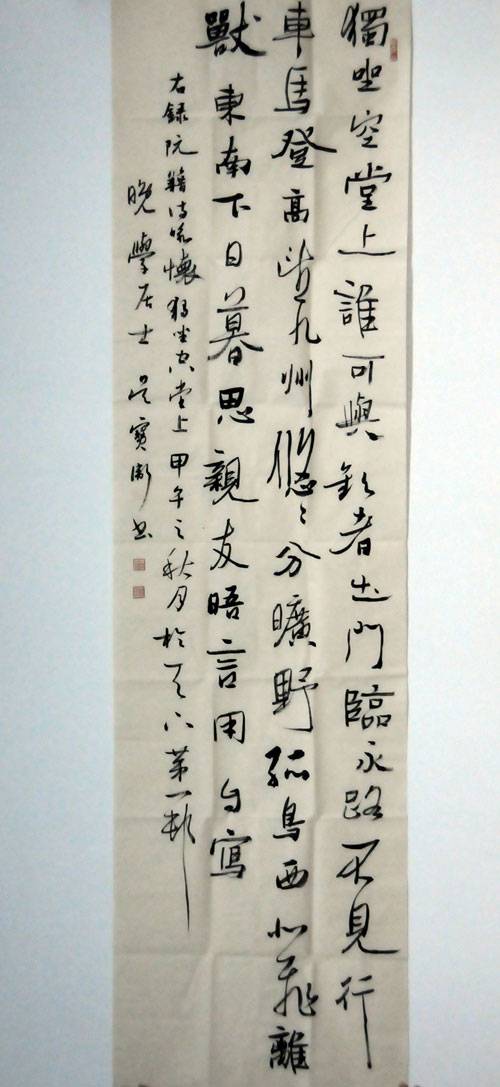 獨坐空堂上誰可與欢者出門臨永路不見行
車馬登高望九州悠々分曠野孤鳥西北飛離
獸東南下日暮思親友晤言用自寫
右録阮籍詩咏懷獨坐空堂上甲午之秋月於天下第一邨
晚學居士吴寶書